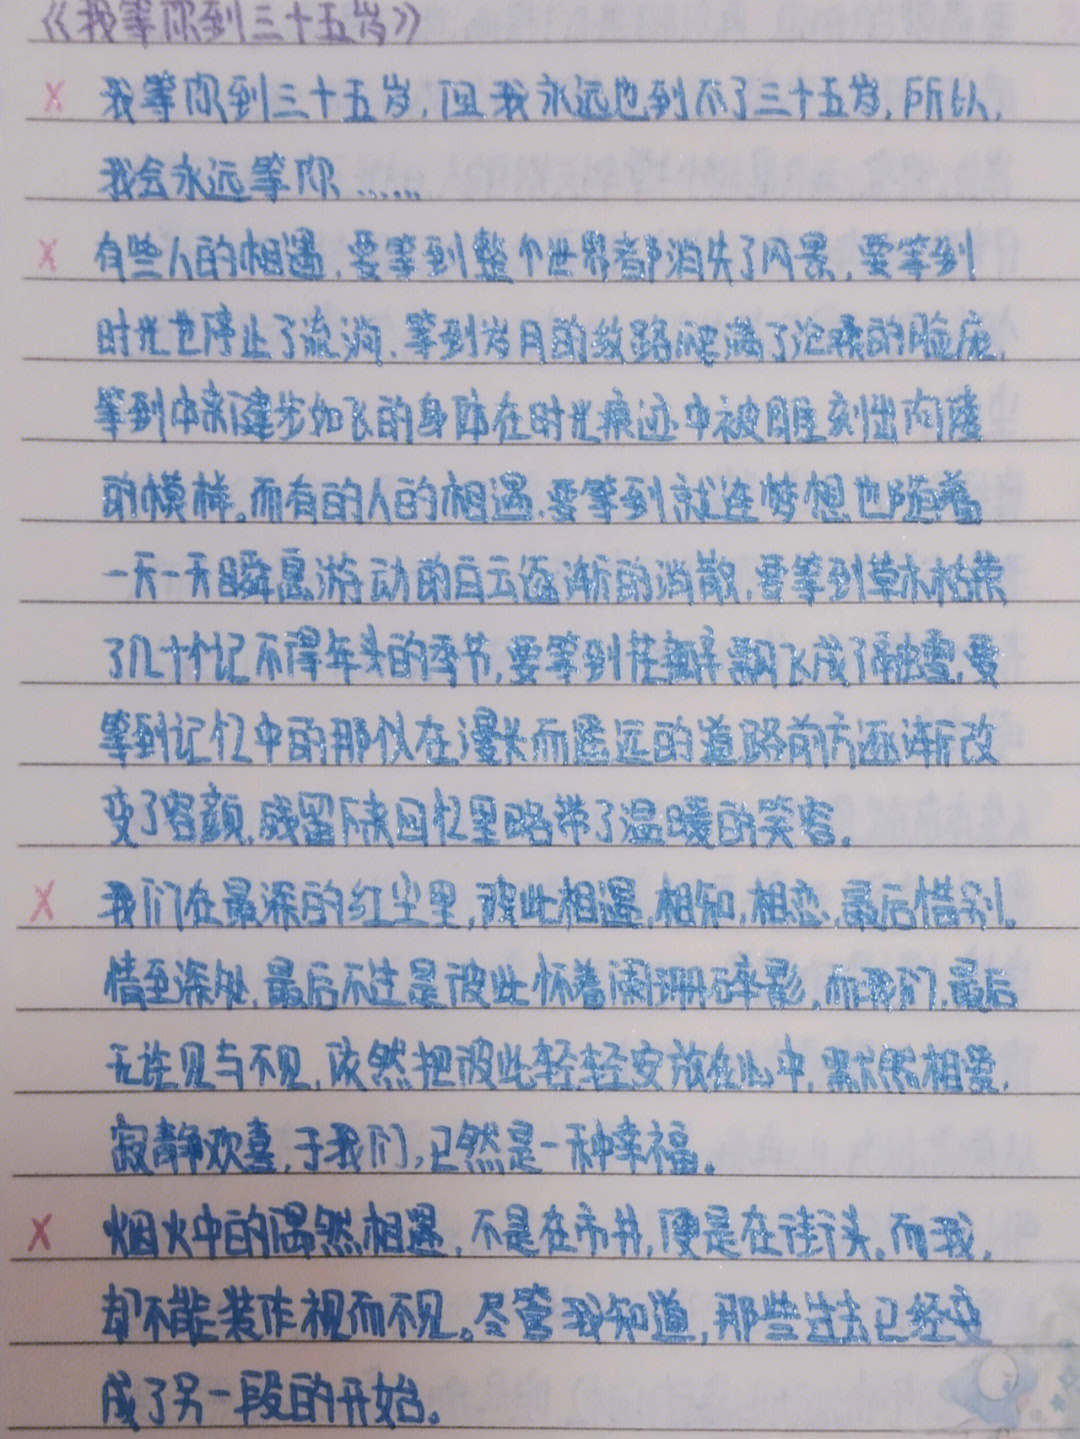 《我等你到三十五岁》
x 我等你到三十五岁,但我永远也到不了三十五岁,所以,
我会永远等你……
x 有些人的相遇,要等到整个世界都消失了风景,要等到
时光也停止了流淌,等到岁月的纹路爬满了沧桑的脸庞,
等到本来健步如飞的身体在时光痕迹中被雕刻出佝偻
的模样。而有的人的相遇,要等到就连梦想也随着
一天一天瞬息游动的白云逐渐的消散,要等到草木枯荣
了几十个记不得年头的季节,要等到花瓣飘飞成了融雪,要
等到记忆中的那似在漫长而遥远的道路前方逐渐改
变了容颜,残留下来回忆里略带了温暖的笑容。
x 我们在最深的红尘里,彼此相遇,相知,相恋,最后惜别。
情至深处,最后不过是彼此怀着阑珊碎影,而我们,最后
无论见与不见,依然把彼此轻轻安放在心中,默然相爱,
寂静欢喜,于我们,已然是一种幸福。
x 烟火中的偶然相遇,不是在市井,便是在街头。而我,
却不能装作视而不见。尽管我知道,那些过去已经变
成了另一段的开始。